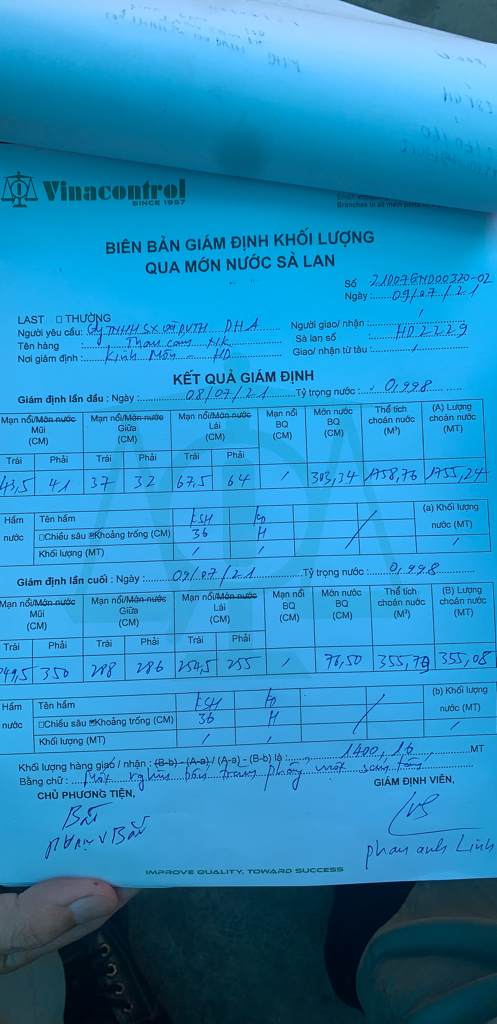 Vinacontrol
SINCE 1957
Branches in all main ports
BIÊN BẢN GIÁM ĐỊNH KHỐI LƯỢNG
QUA MỚN NƯỚC SÀ LAN
Số 21D07EMD00320-02
Ngày: 09/07/21
LAST □ THƯỜNG
Người yêu cầu: Cty TNHH SX và DVTH DHA
Người giao/ nhận :
Tên hàng : Than cám NK
Sà lan số HD2229
Nơi giám định : Kinh Môn - HD
Giao/ nhận từ tàu :
KẾT QUẢ GIÁM ĐỊNH
Giám định lần đầu : Ngày : 08/07/21 Tỷ trọng nước : 0,998
Mạn nổi/Mớn nước Mũi (CM) Mạn nổi/Mớn nước Giữa (CM) Mạn nổi/Mớn nước Lái (CM) Mạn nổi BQ (CM) Mớn nước BQ (CM) Thể tích choán nước (M³) (A) Lượng choán nước (MT)
Trái Phải Trái Phải Trái Phải
43,5 41 37 32 67,5 64 / 303,34 1758,76 1755,24
Hầm nước Tên hầm KSH KO (a) Khối lượng nước (MT)
□Chiều sâu Khoảng trống (CM) 36 H
Khối lượng (MT) / / /
Giám định lần cuối : Ngày : 09/07/21 Tỷ trọng nước : 0,998
Mạn nổi/Mớn nước Mũi (CM) Mạn nổi/Mớn nước Giữa (CM) Mạn nổi/Mớn nước Lái (CM) Mạn nổi BQ (CM) Mớn nước BQ (CM) Thể tích choán nước (M³) (B) Lượng choán nước (MT)
Trái Phải Trái Phải Trái Phải
249,5 350 288 286 254,5 255 / 76,50 355,79 355,08
Hầm nước Tên hầm KSH KO (b) Khối lượng nước (MT)
□Chiều sâu Khoảng trống (CM) 36 H
Khối lượng (MT) / / /
Khối lượng hàng giao / nhận : (B-b) - (A-a) / (A-a) - (B-b) là : 1400,16 MT
Bằng chữ : Một nghìn bốn trăm phẩy một sáu tấn
CHỦ PHƯƠNG TIỆN,
GIÁM ĐỊNH VIÊN,
Bắc
phan anh Linh
IMPROVE QUALITY, TOWARD SUCCESS